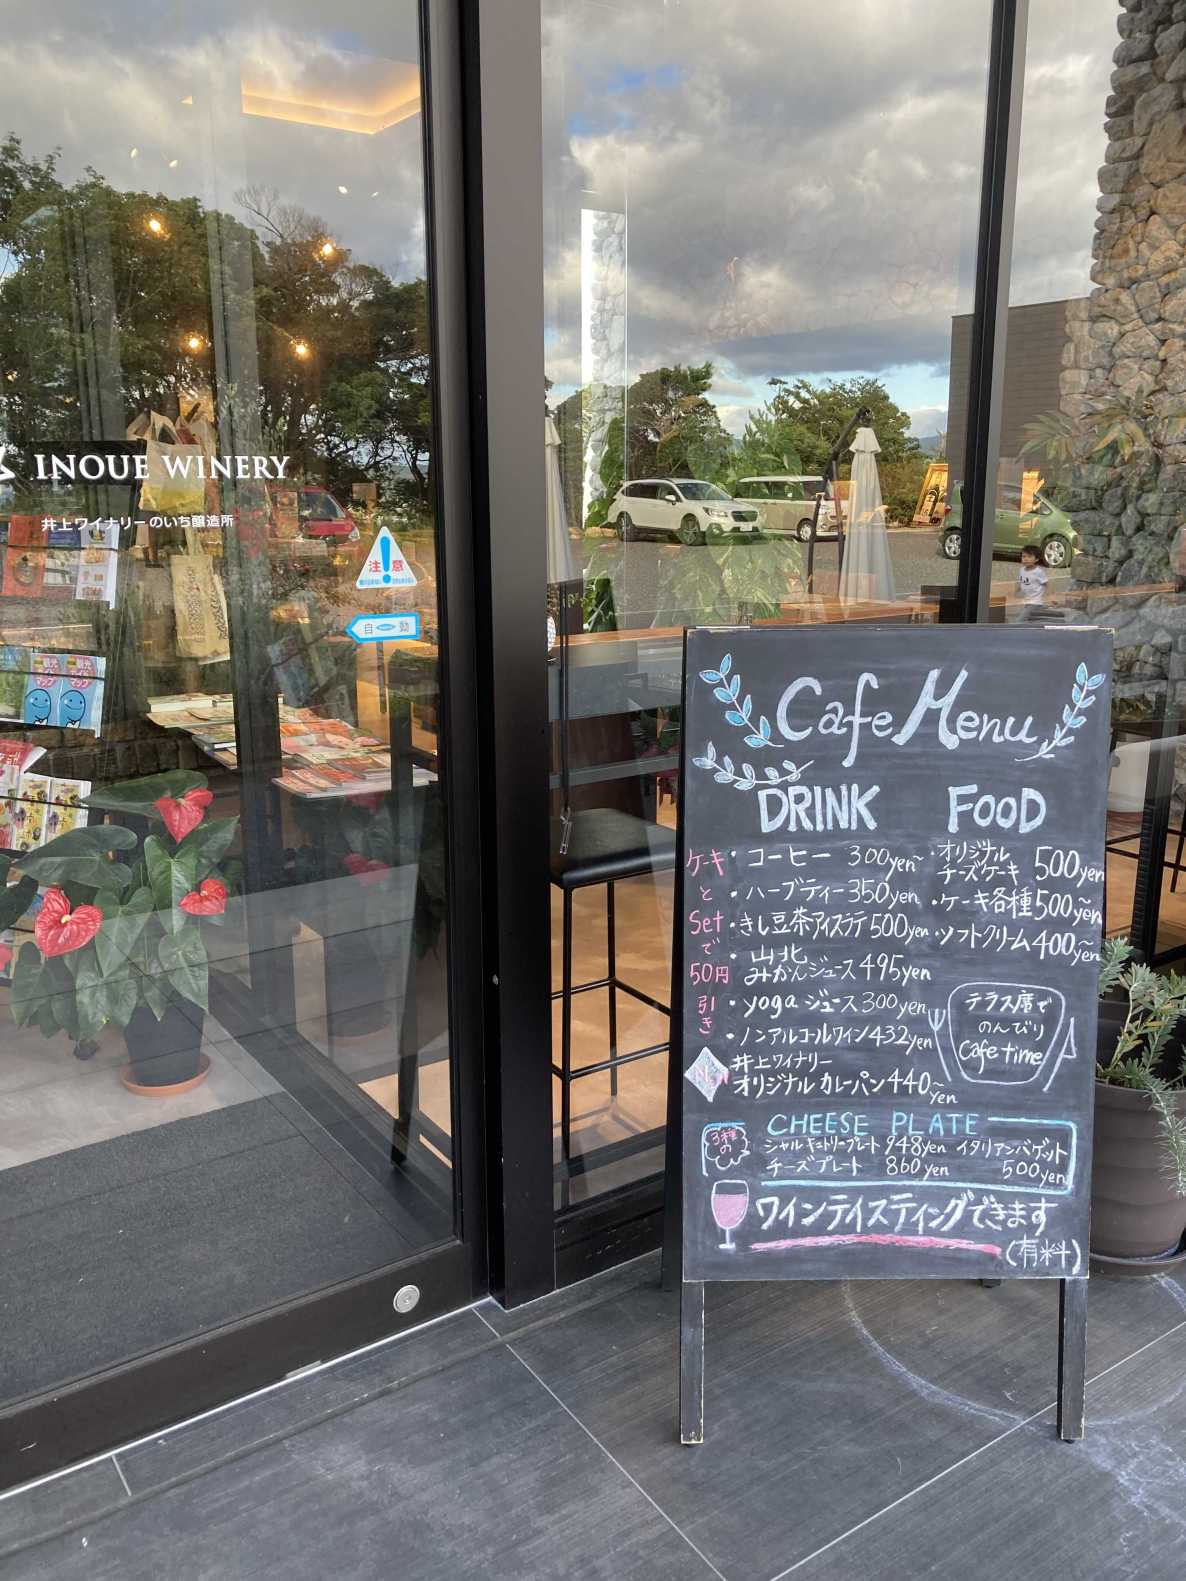 INOUE WINERY
井上ワイナリーのいち醸造所
注意
自動
観光
ガイド
マップ
Cafe Menu
DRINK
FOOD
ケーキとSetで50円引き
・コーヒー 300yen~
・ハーブティー 350yen
・きし豆茶アイスラテ 500yen
・山北みかんジュース 495yen
・yoga ジュース 300yen
・ノンアルコールワイン 432yen
井上ワイナリー
オリジナルカレーパン 440~yen
・オリジナル
チーズケーキ 500yen
・ケーキ各種 500~yen
・ソフトクリーム 400~yen
テラス席で
のんびり
Cafe time
CHEESE PLATE
3種の
シャルキュトリープレート 948yen
チーズプレート 860yen
イタリアンバゲット
500yen
ワインテイスティングできます
(有料)